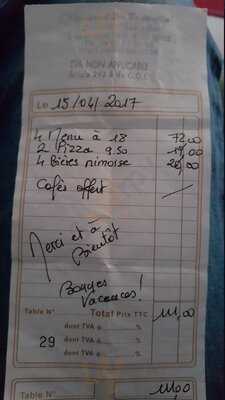 TVA NON APPLICABLE
Article 293 B du C.G.I.
Le 15/04/2017
4 Menu à 18 72,00
2 Pizza 9,50 19,00
4 Bières nimoise 20,00
Cafés offert /
Merci et à
Bientôt
Bonnes
Vacances!
Table N° Total Prix TTC 111,00
29
dont TVA à %
dont TVA à %
dont TVA à %
Table N° 111,00